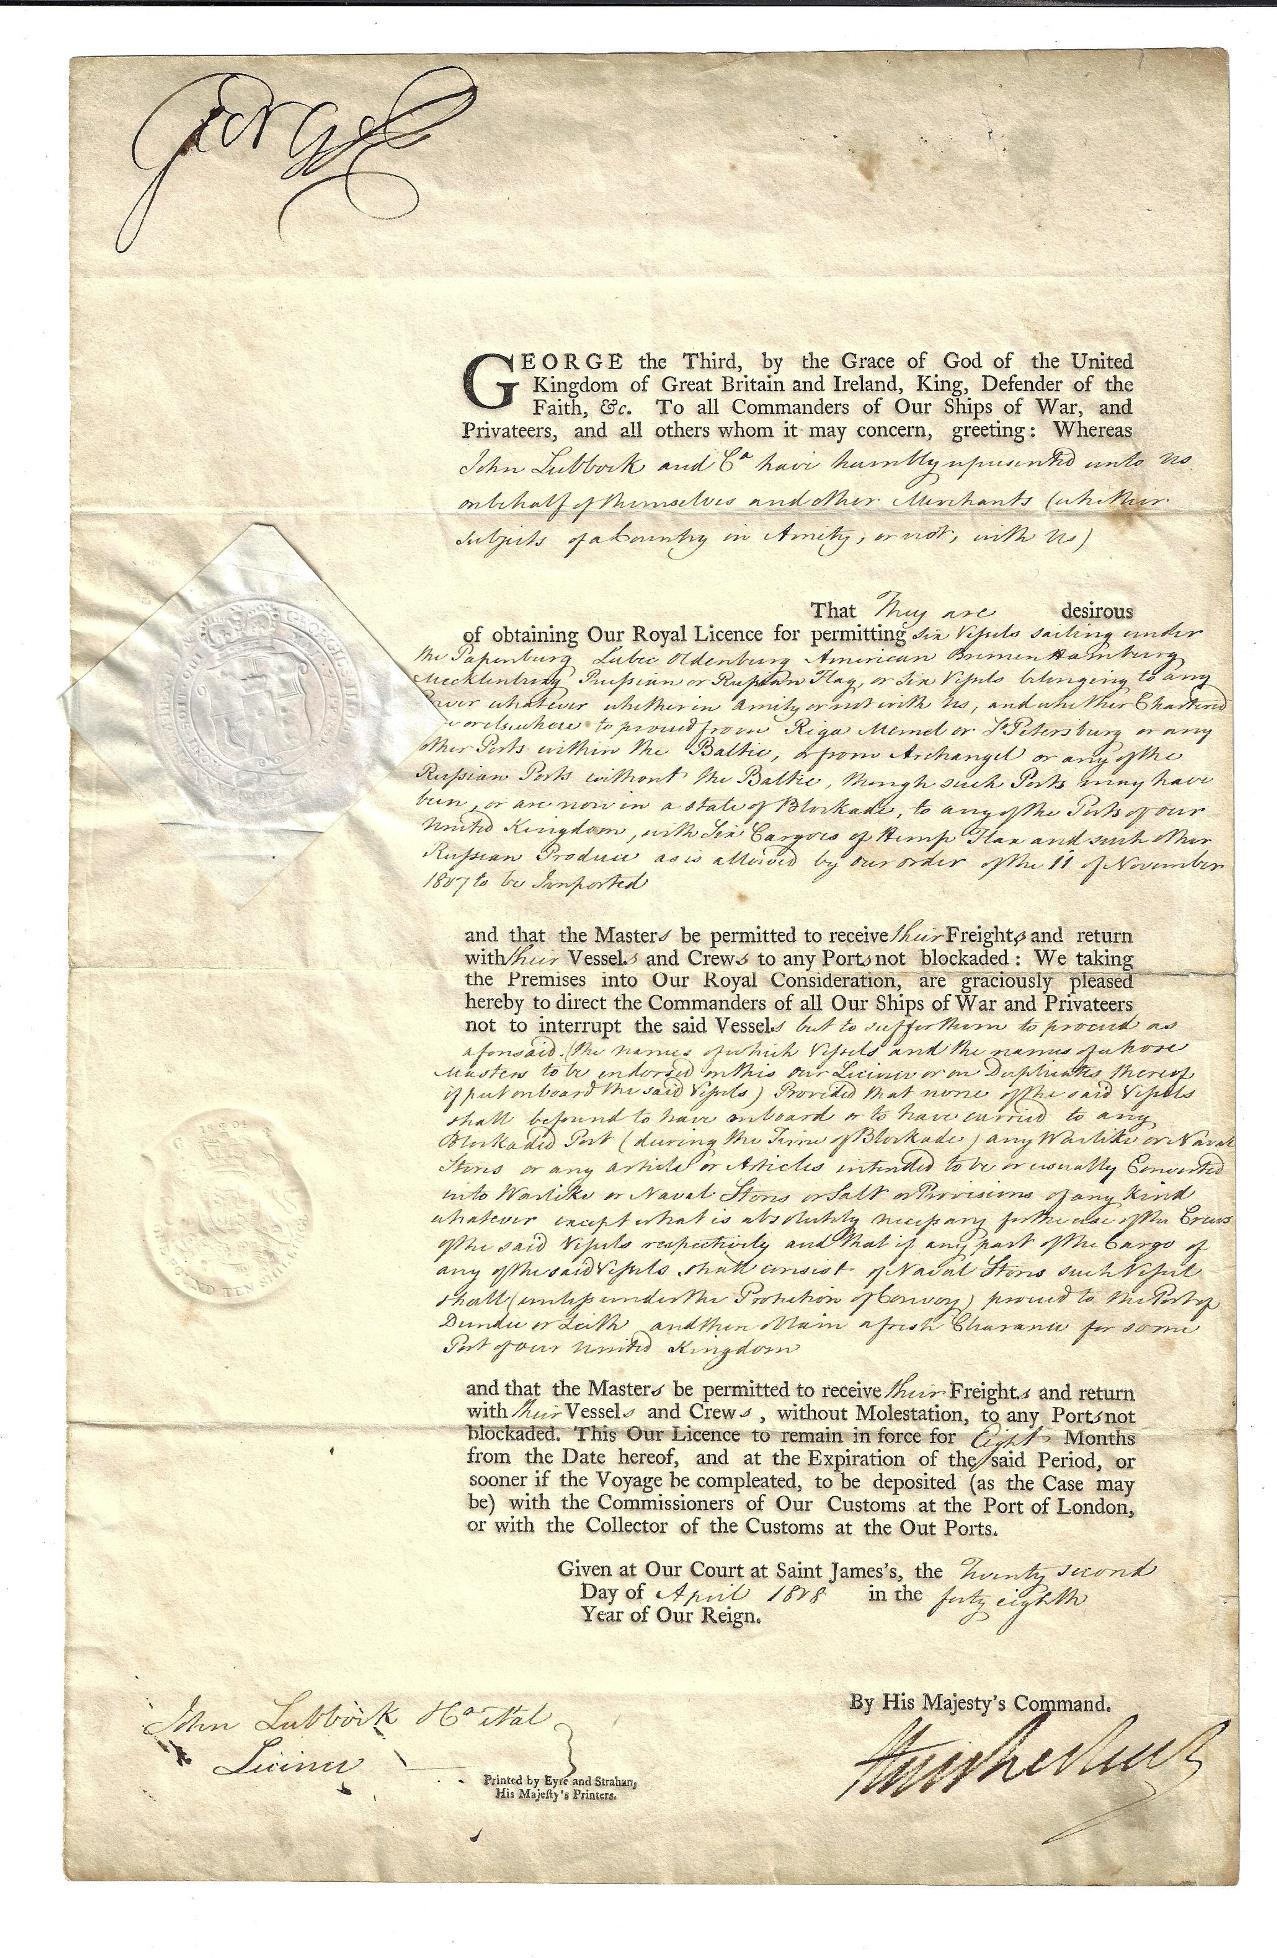 George R
GEORGE the Third, by the Grace of God of the United
Kingdom of Great Britain and Ireland, King, Defender of the
Faith, &c. To all Commanders of Our Ships of War, and
Privateers, and all others whom it may concern, greeting: Whereas
John Lubbock and Co have humbly represented unto Us
on behalf of themselves and other Merchants (whether
subjects of a Country in Amity, or not, with Us)
That They are desirous
of obtaining Our Royal Licence for permitting six Vessels sailing under
the Papenburg Lubec Oldenburg American Bremen Hamburg
Mecklenburg Prussian or Russian Flag, or Six Vessels belonging to any
Power whatever whether in Amity or not with Us, and whether Chartered
or elsewhere to proceed from Riga Memel or St Petersburg or any
other Ports within the Baltic, or from Archangel or any of the
Russian Ports without the Baltic, though such Ports may have
been, or are now in a state of Blockade, to any of the Ports of our
United Kingdom, with Six Cargoes of Hemp Flax and such other
Russian Produce as is allowed by our order of the 11 of November
1807 to be Imported
and that the Masters be permitted to receive their Freights and return
with their Vessels and Crews to any Ports not blockaded: We taking
the Premises into Our Royal Consideration, are graciously pleased
hereby to direct the Commanders of all Our Ships of War and Privateers
not to interrupt the said Vessels but to suffer them to proceed as
aforesaid. (the names of which Vessels and the names of whose
Masters to be endorsed on this our Licence or on Duplicates thereof
if put on board the said Vessels) Provided that none of the said Vessels
shall be found to have on board or to have carried to any
Blockaded Port (during the Time of Blockade) any Warlike or Naval
Stores or any article or Articles intended to be or usually Converted
into Warlike or Naval Stores or Salt or Provisions of any Kind
whatever except what is absolutely necessary for the use of the Crews
of the said Vessels respectively and that if any part of the Cargo of
any of the said Vessels shall consist of Naval Stores such Vessel
shall (unless under the Protection of Convoy) proceed to the Port of
Dundee or Leith and then obtain a fresh Clearance for some
Port of our United Kingdom
and that the Masters be permitted to receive their Freights and return
with their Vessels and Crews, without Molestation, to any Ports not
blockaded. This Our Licence to remain in force for Eight Months
from the Date hereof, and at the Expiration of the said Period, or
sooner if the Voyage be compleated, to be deposited (as the Case may
be) with the Commissioners of Our Customs at the Port of London,
or with the Collector of the Customs at the Out Ports.
Given at Our Court at Saint James's, the Twenty second
Day of April 1808 in the forty eighth
Year of Our Reign.
By His Majesty's Command.
Hawkesbury
John Lubbock & Co
Licence
Printed by Eyre and Strahan,
His Majesty's Printers.